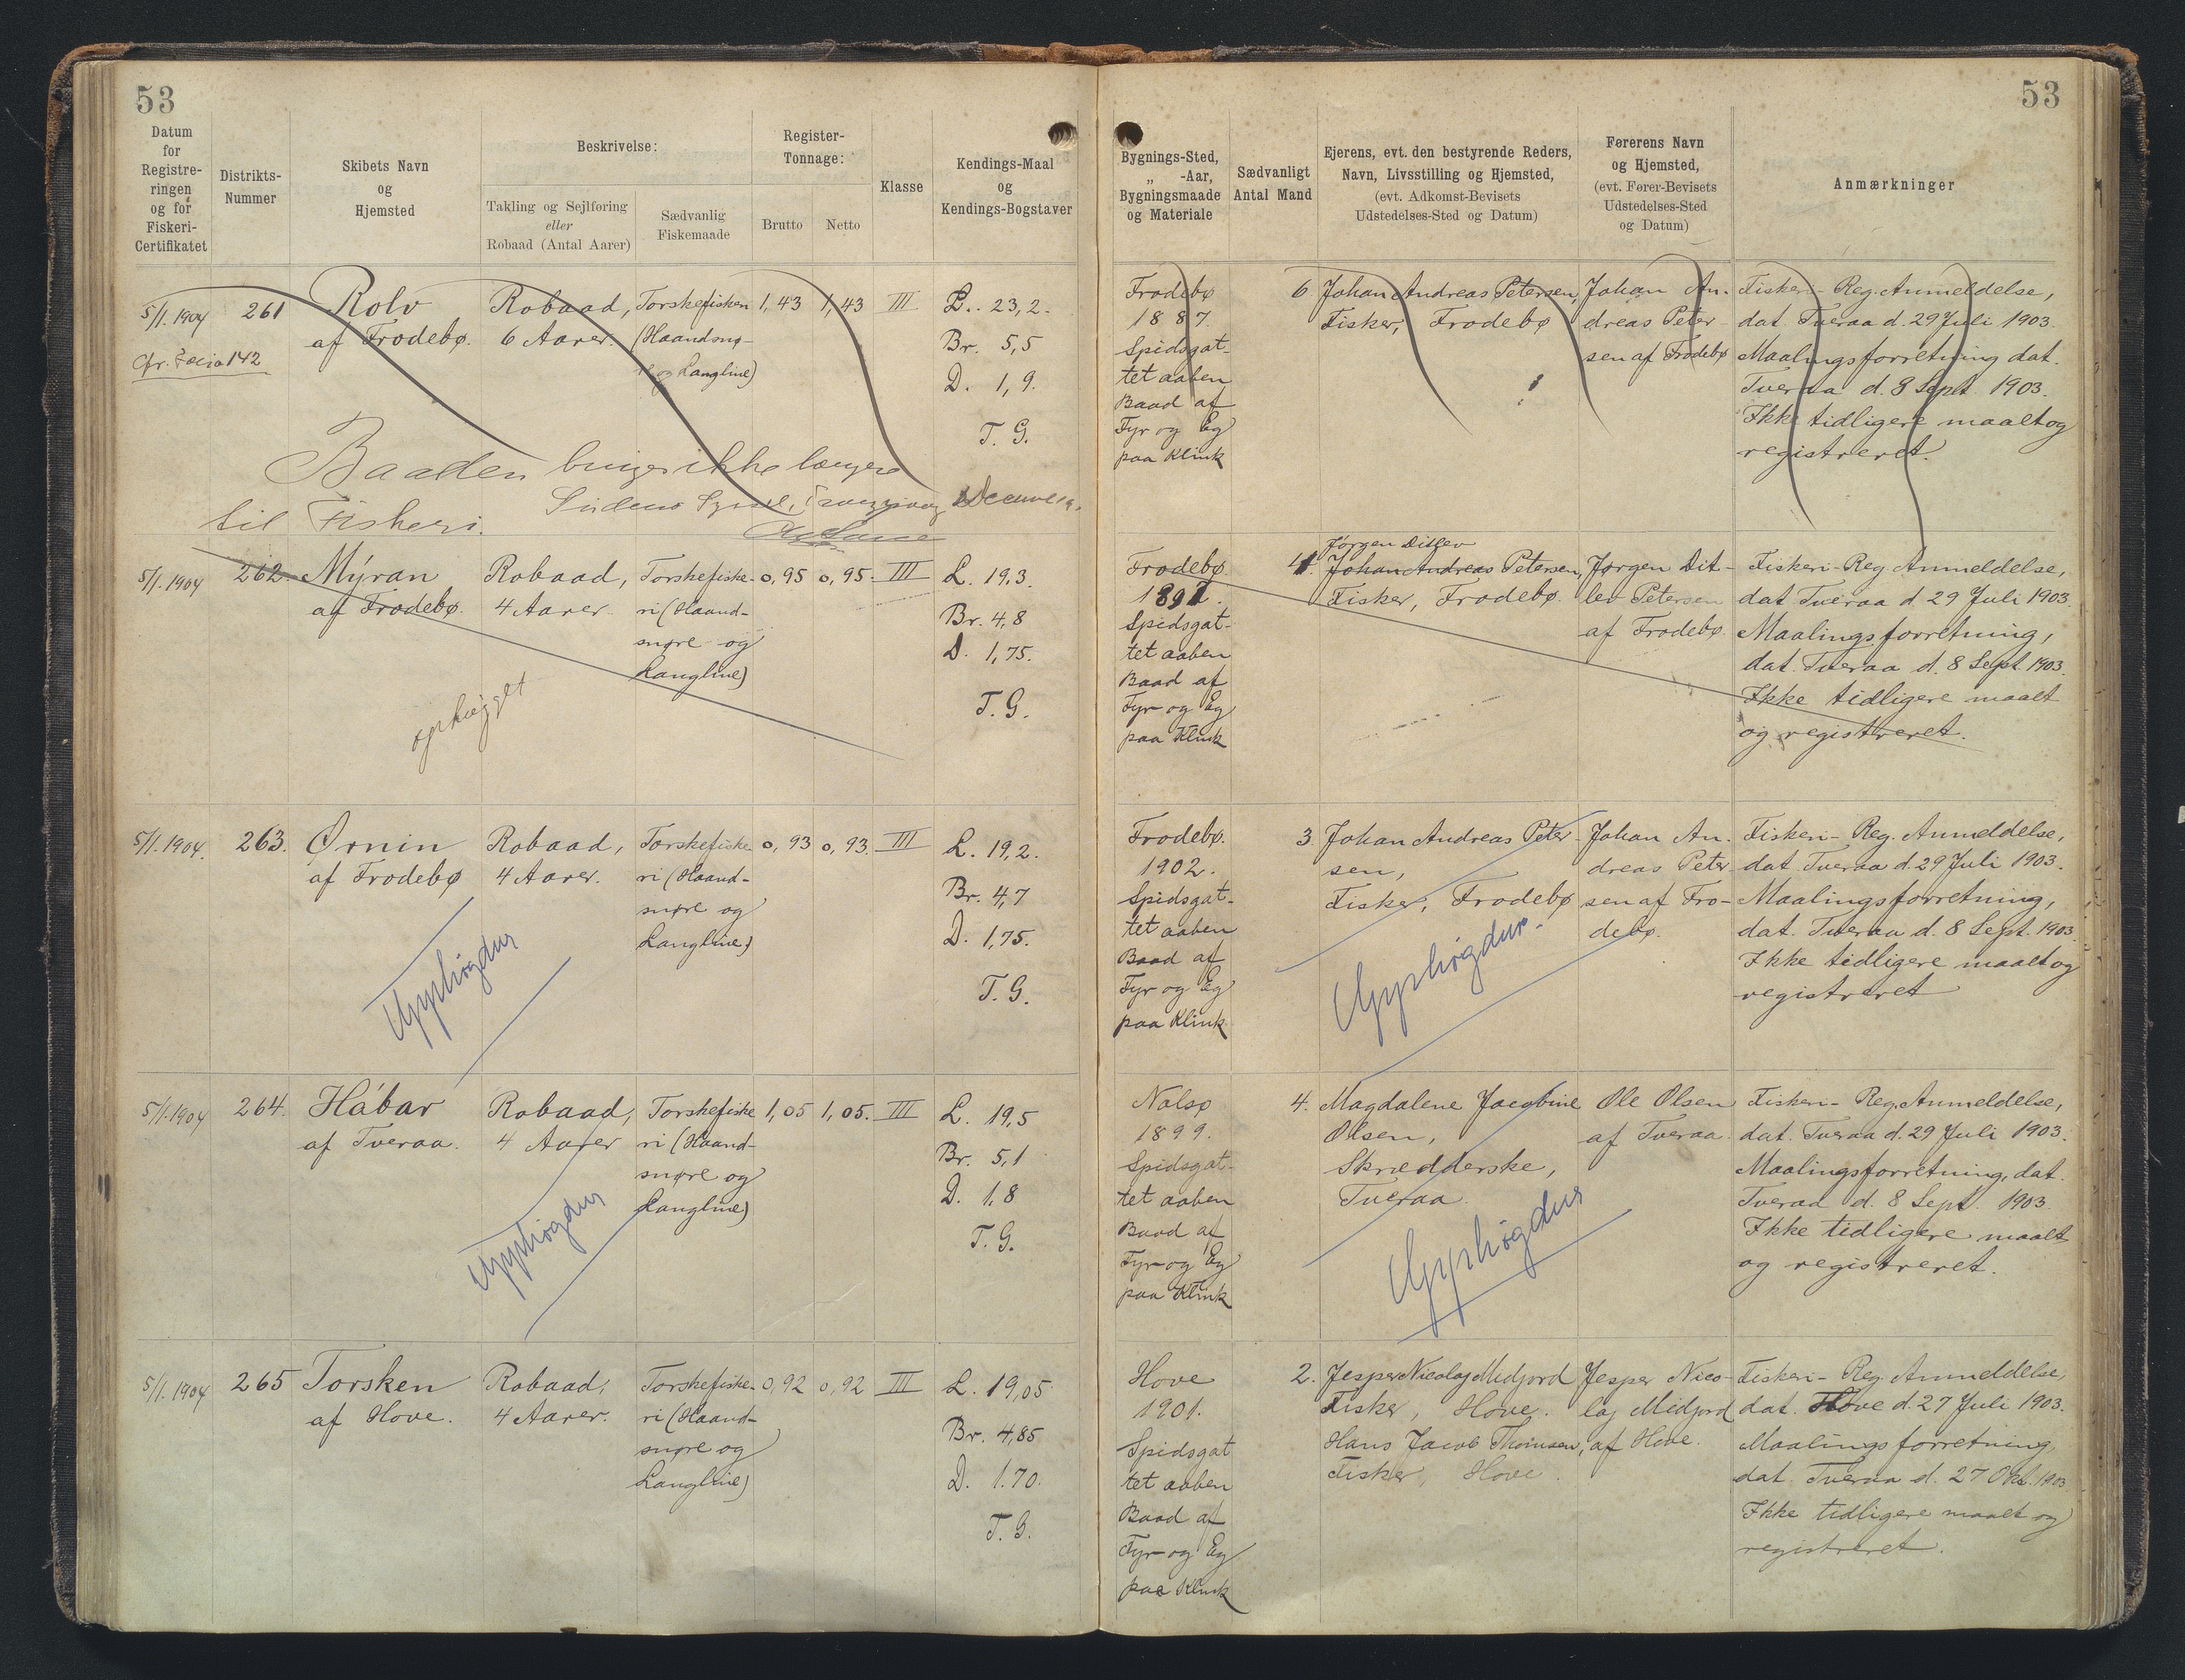 53
53
Datum
for
Registre-
ringen
og for
Fiskeri-
Certifikatet
Distrikts-
Nummer
Skibets Navn
og
Hjemsted
Beskrivelse:
Takling og Sejlføring
eller
Robaad (Antal Aarer)
Sædvanlig
Fiskemaade
Register-
Tonnage:
Brutto
Netto
Klasse
Kendings-Maal
og
Kendings-Bogstaver
Bygnings-Sted,
„ -Aar,
Bygningsmaade
og Materiale
Sædvanligt
Antal Mand
Ejerens, evt. den bestyrende Reders,
Navn, Livsstilling og Hjemsted,
(evt. Adkomst-Bevisets
Udstedelses-Sted og Datum)
Førerens Navn
og Hjemsted,
(evt. Fører-Bevisets
Udstedelses-Sted
og Datum)
Anmærkninger
5/1. 1904
142
261
Rolv
af Frodebø.
Robaad,
6 Aarer.
Torskefiskeri
(Haandsnø-
re og Langline)
1,43
1,43
III
L. 23,2.
Br. 5,5
D. 1,9.
T. G.
Baaden bruges ikke længere
til Fiskeri.
Frodebø
1887.
Spidsgat-
tet aaben
Baad af
Fyr og Eg
paa Klink
6
Johan Andreas Petersen,
Fisker, Frodebø
Johan An-
dreas Peter-
sen af Frodebø
Fiskeri-Reg. Anmeldelse,
dat. Tveraa d. 29 Juli 1903.
Maalingsforretning dat.
Tveraa d. 8 Sept. 1903.
Ikke tidligere maalt og
registreret.
5/1. 1904
262
Mýran
af Frodebø.
Robaad,
4 Aarer.
Torskefiske-
ri (Haand-
snøre og
Langline)
0,95
0,95.
III
L. 19,3.
Br. 4,8
D. 1,75.
T. G.
ophugget
Frodebø.
1897.
Spidsgat-
tet aaben
Baad af
Fyr og Eg
paa Klink
4.
Jørgen Ditlev
Johan Andreas Petersen,
Fisker, Frodebø.
Jørgen Dit-
lev Petersen
af Frodebø.
Fiskeri-Reg Anmeldelse,
dat. Tveraa d 29 Juli 1903.
Maalingsforretning,
dat. Tveraa d. 8 Sept. 1903.
Ikke tidligere maalt
og registreret.
5/1. 1904.
263.
Ørnin
af Frodebø
Robaad,
4 Aarer.
Torskefiske
ri (Haand-
snøre og
Langline)
0,93
0,93.
III
L. 19,2.
Br. 4,7
D. 1,75.
T. G.
Upphøgdur
Frodebø.
1902.
Spidsgat-
tet aaben
Baad af
Fyr og Eg
paa Klink
3
Johan Andreas Peter-
sen,
Fisker, Frodebø
Upphøgdur.
Johan An-
dreas Peter-
sen af Fro-
debø.
Fiskeri-Reg. Anmeldelse,
dat. Tveraa d. 29 Juli 1903.
Maalingsforretning,
dat. Tveraa d. 8 Sept. 1903.
Ikke tidligere maalt og
registreret
5/1. 1904
264.
Hábar
af Tveraa.
Robaad,
4 Aarer
Torskefiske
ri (Haand-
snøre og
Langline)
1,05
1,05.
III
L. 19,5
Br. 5,1
D. 1,8
T. G.
Upphøgdur
Nolsø
1899.
Spidsgat-
tet aaben
Baad af
Fyr og Eg
paa Klink
4.
Magdalene Jacobine
Olsen,
Skrædderske,
Tveraa.
Upphøgdur
Ole Olsen
af Tveraa.
Fiskeri-Reg. Anmeldelse,
dat. Tveraa d. 29 Juli 1903.
Maalingsforretning, dat.
Tveraa d. 8 Sept. 1903.
Ikke tidligere maalt
og registreret.
5/1. 1904
265
Torsken
af Hove.
Robaad,
4 Aarer.
Torskefiske-
ri (Haand-
snøre og
Langline)
0,92
0,92
III
L. 19,05.
Br. 4,85
D. 1.70.
T. G.
Hove
1901.
Spidsgat
tet aaben
Baad af
Fyr og Eg
paa Klink
2.
Jesper Nicolaj Midjord
Fisker, Hove.
Hans Jacob Thomsen,
Fisker, Hove.
Jesper Nico-
laj Midjord
af Hove.
Fiskeri-Reg. Anmeldelse,
dat. Hove d. 27 Juli 1903.
Maalingsforretning
dat. Tveraa d. 27 Okt. 1903.
Ikke tidligere maalt og
registreret.